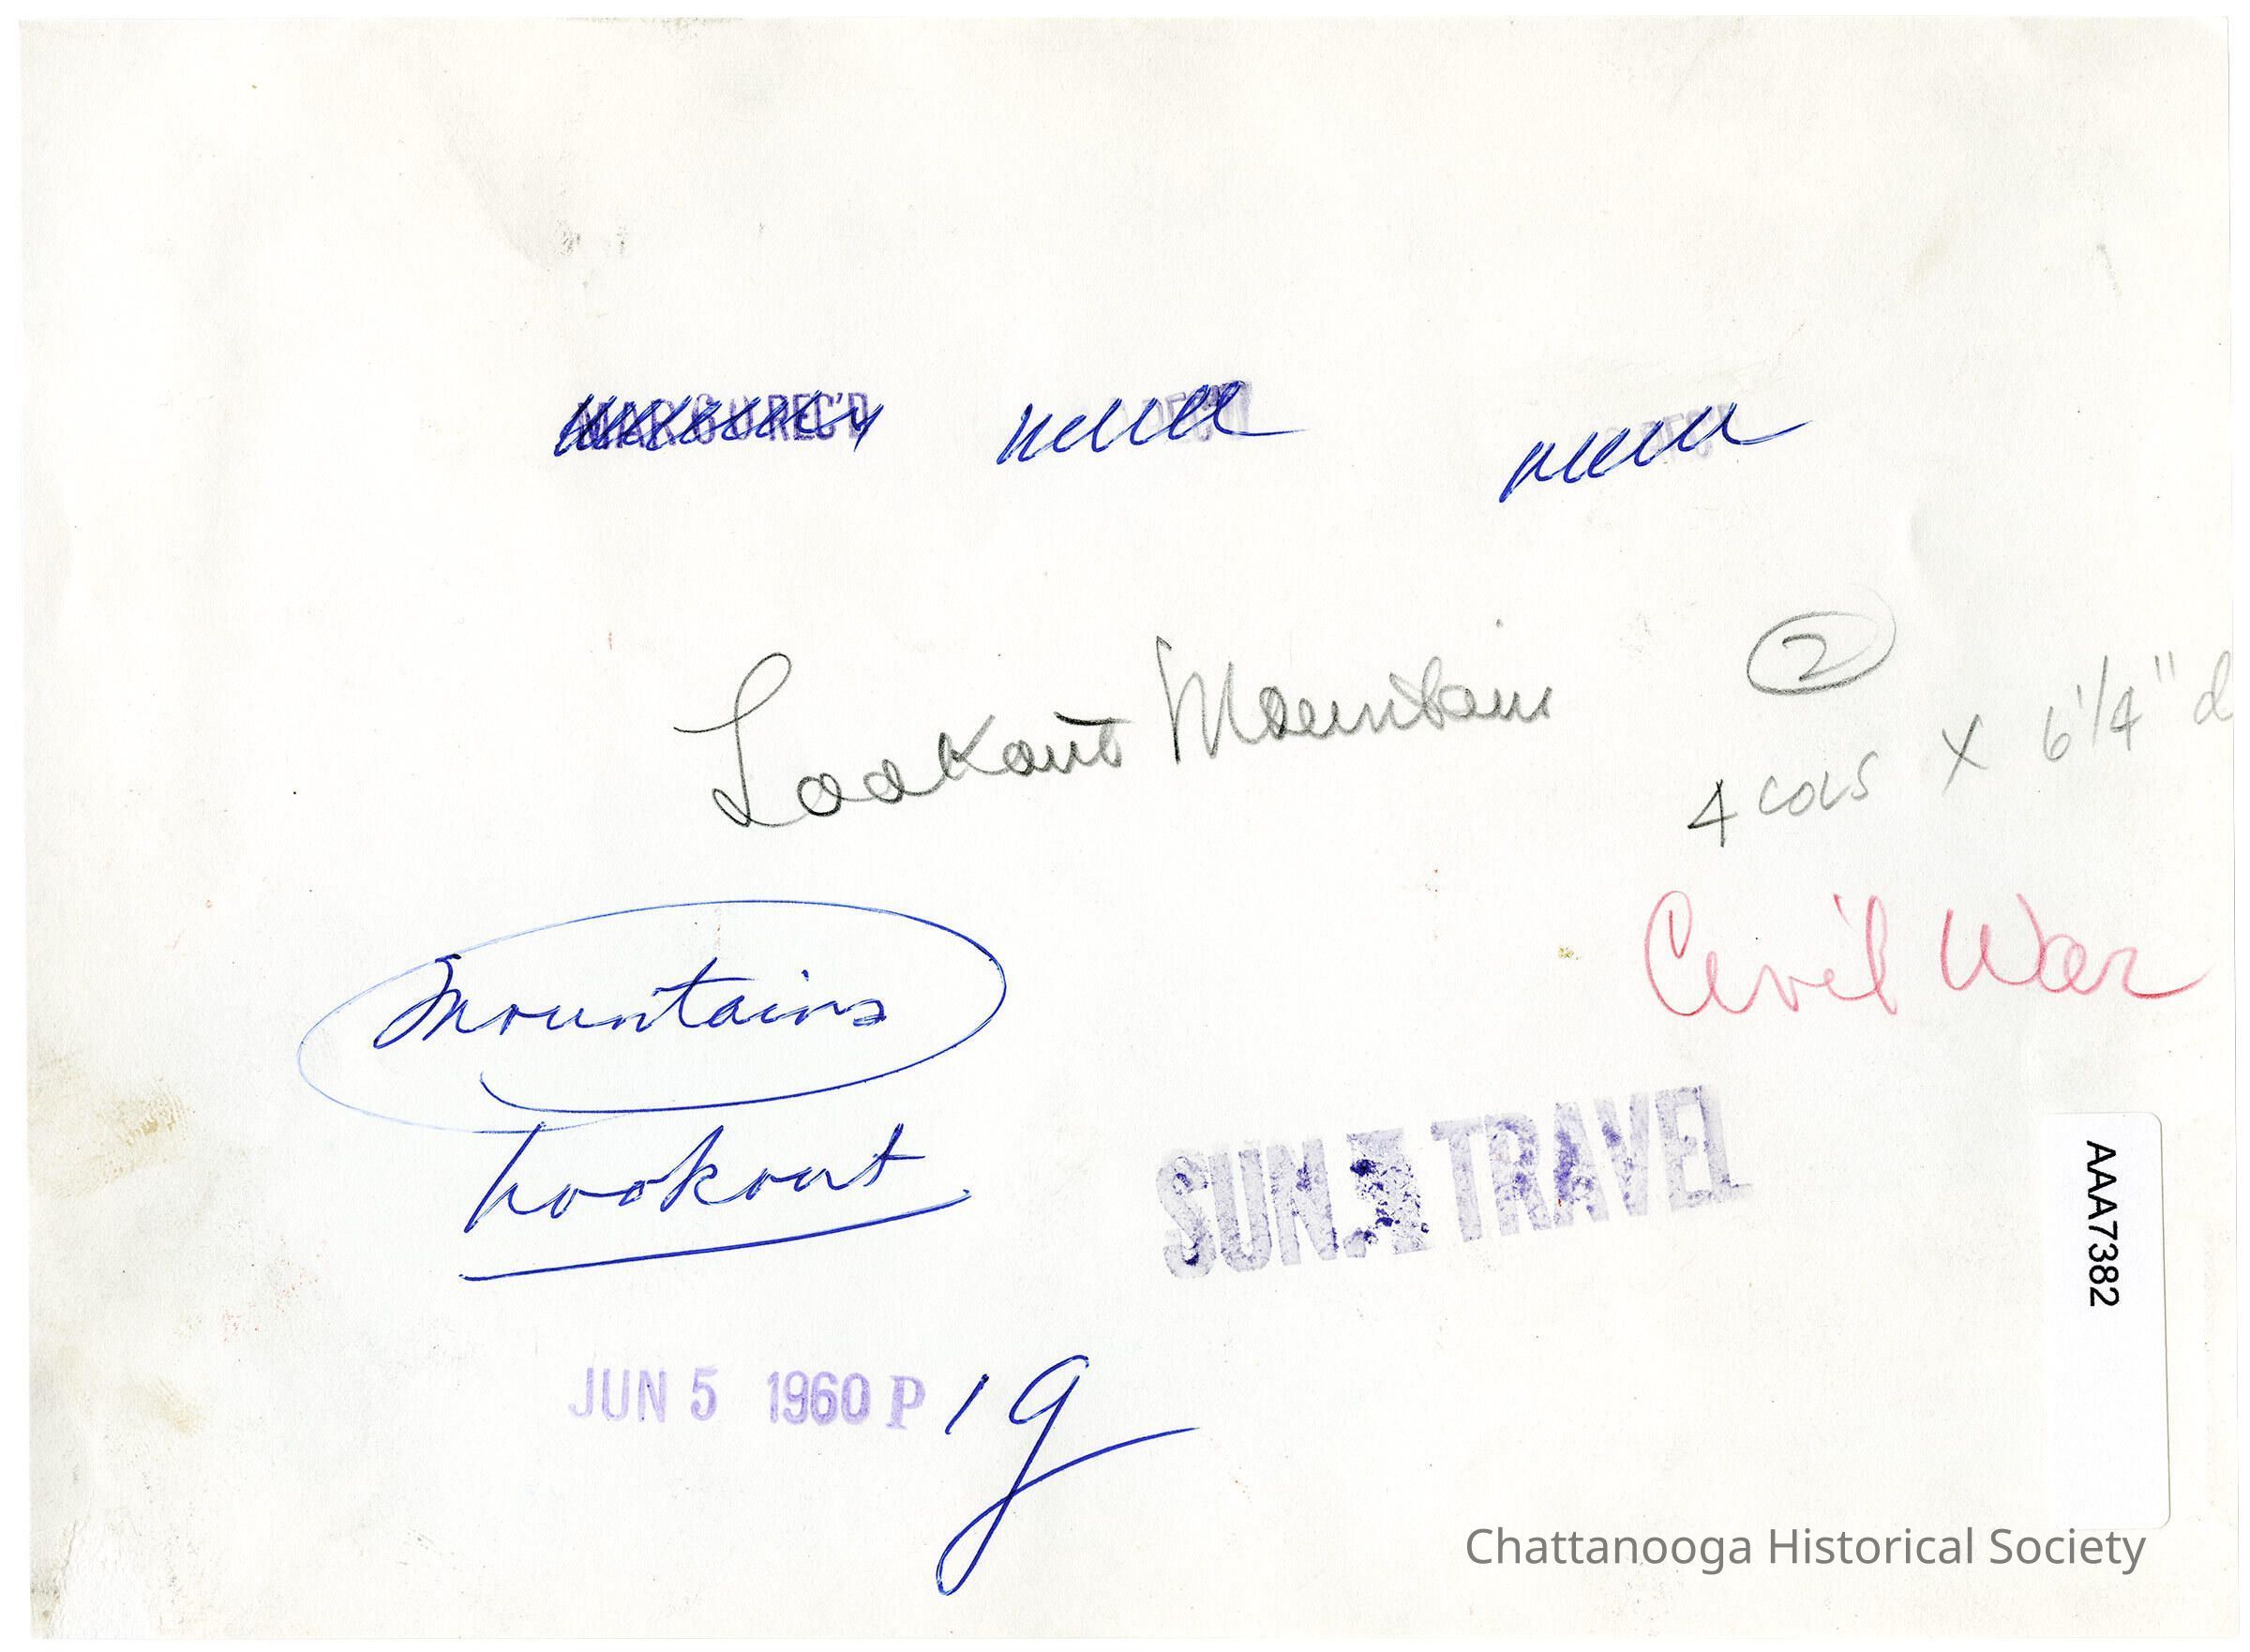 REC'D
Lookout Mountain
2
4 cols X 6 1/4" d
Civil War
Mountains
Lookout
SUN. TRAVEL
AAA7382
JUN 5 1960 P 19
Chattanooga Historical Society